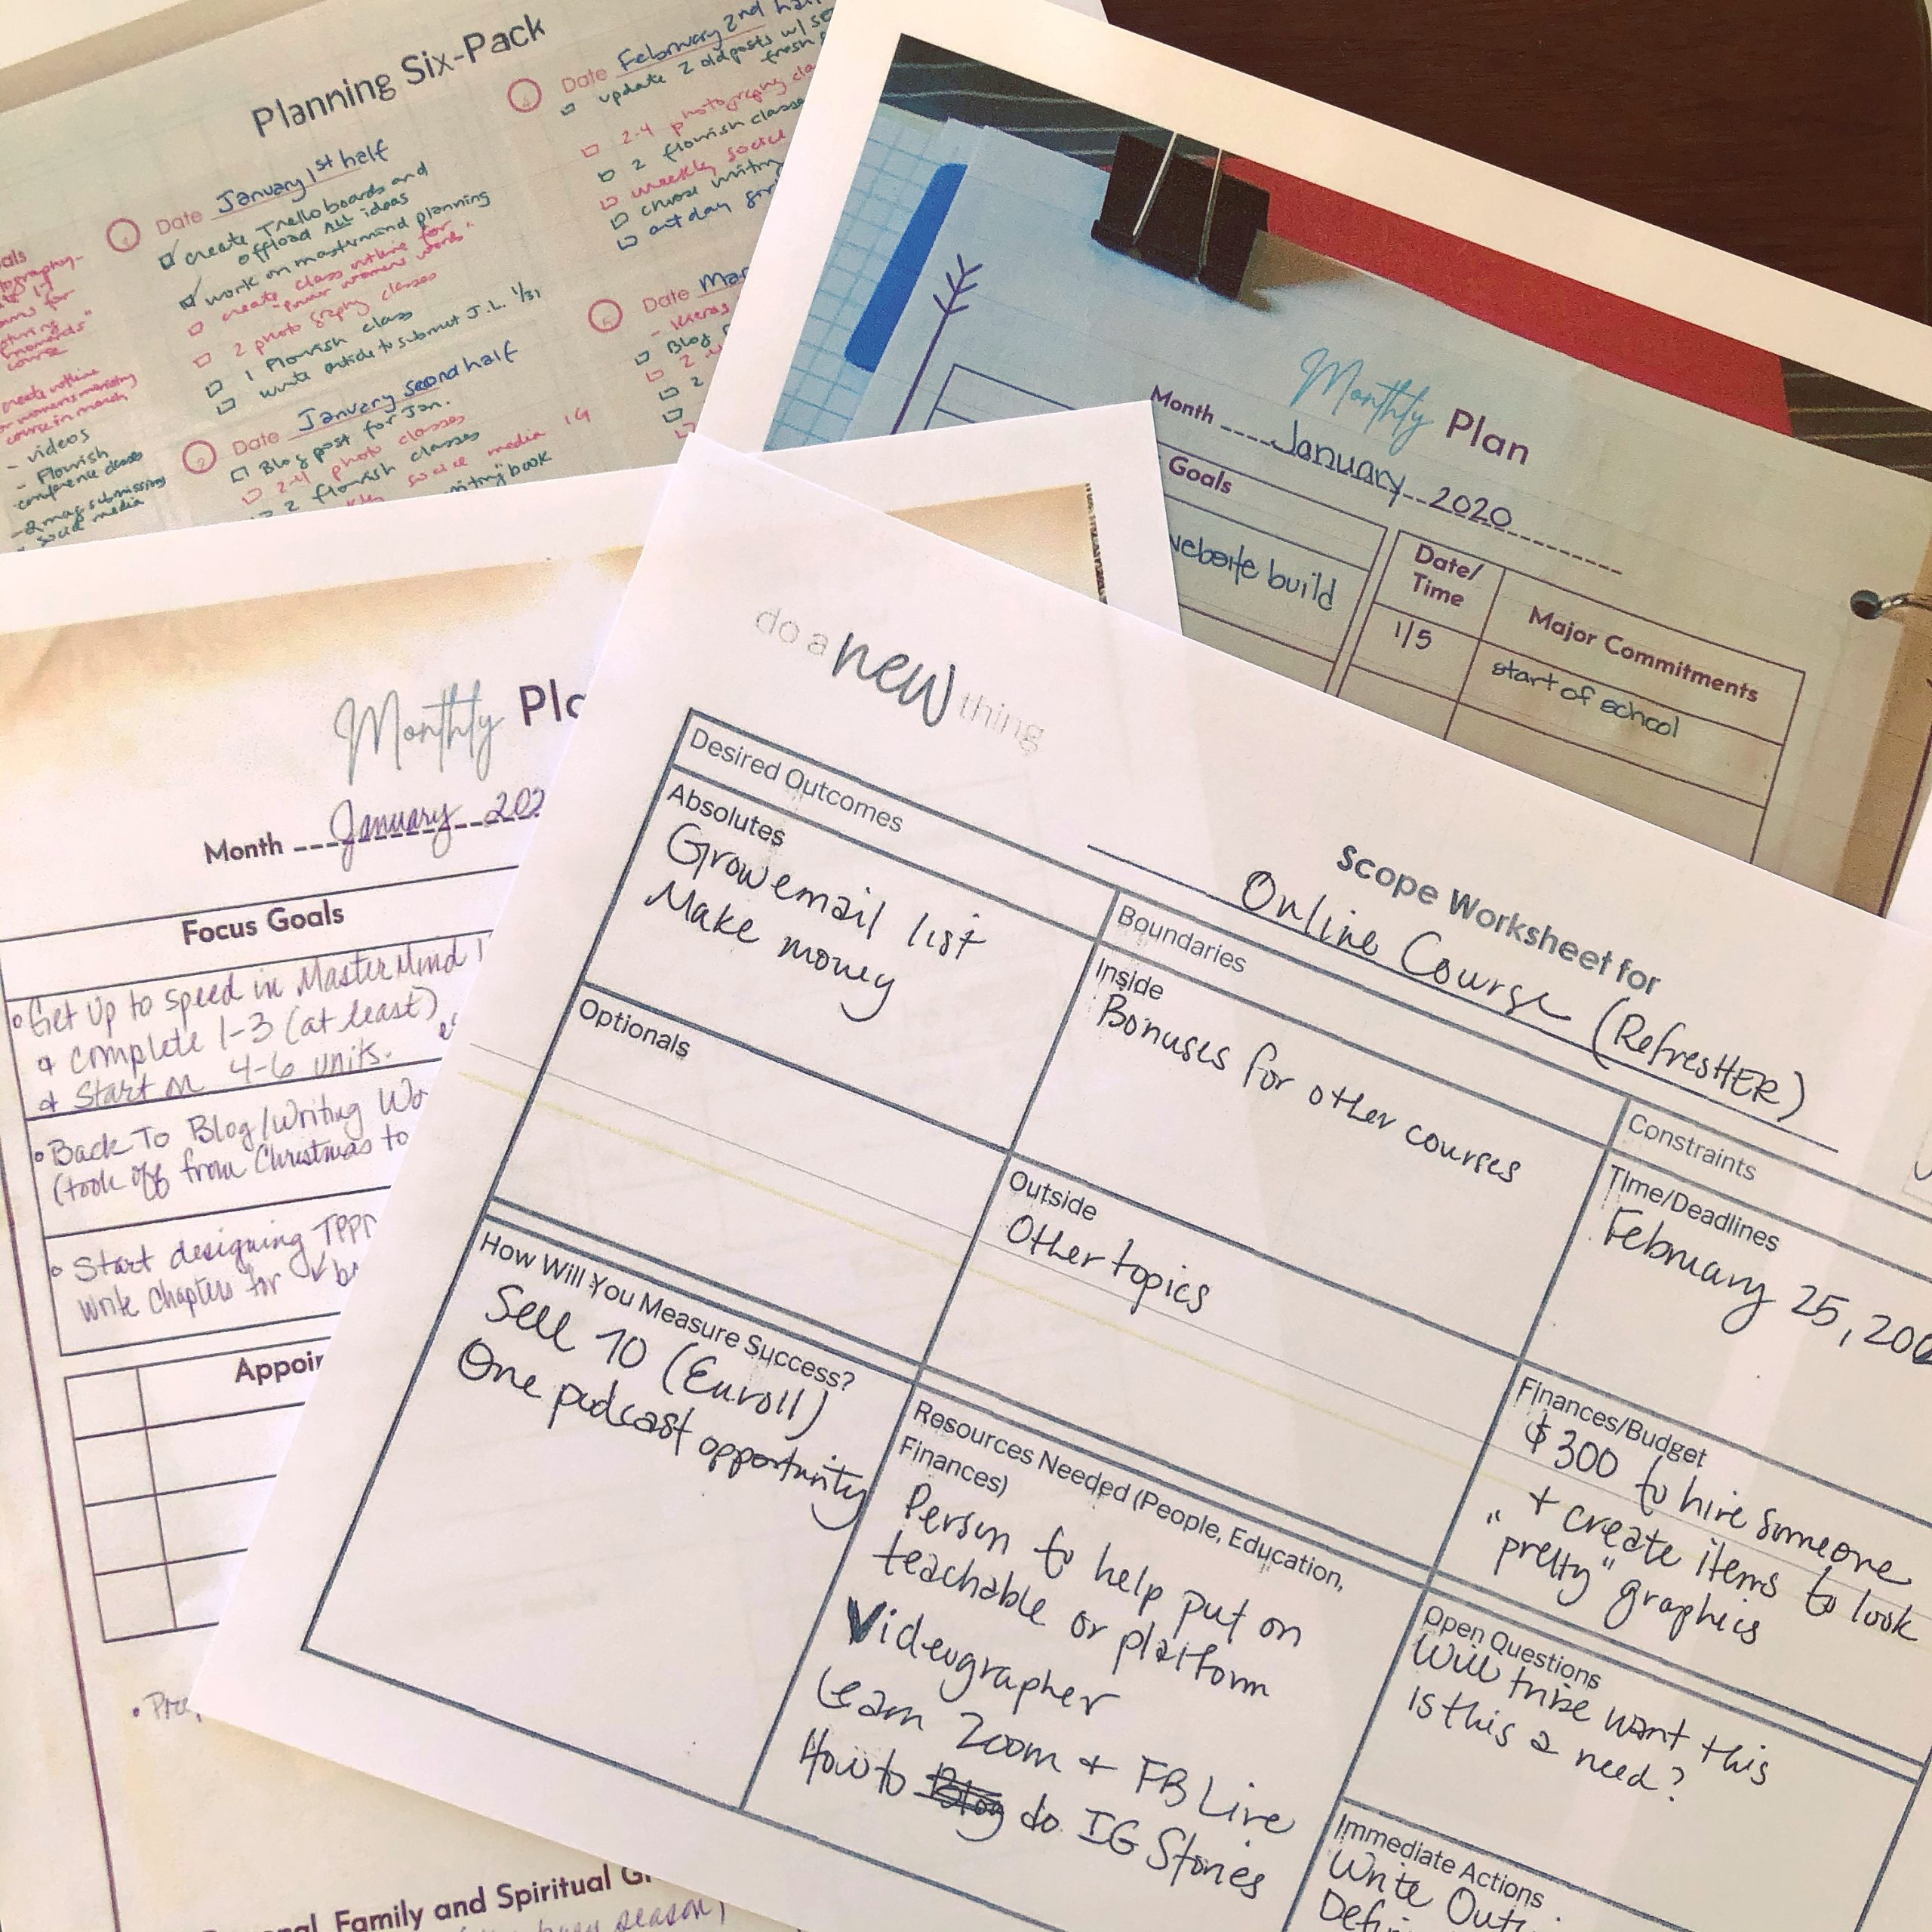 Planning Six-Pack
als
create outline
course in march
- videos
- Flourish
conference classes
- 2 mag submissions
social media
1 Date January 1st half
create Trello boards and
offload ALL ideas
work on mastermind planning
create class outline for
2 photography classes
1 Flourish class
write article to submit J.L. 1/31
2 Date January second half
Blog post for Jan.
2-4 photo classes
2 flourish classes
social media 14
book
4 Date February 2nd hal
update 2 old posts w/ se
fresh
2-4 photography cla
2 flourish classe
weekly social
choose writing
art day
Date Mar
Blog
2
2
Monthly Plan
Month January 2020
Goals
website build
Date/
Time
Major Commitments
1/5
start of school
Monthly Pla
Month January 202
Focus Goals
Get up to speed in MasterMind
& complete 1-3 (at least)
& Start on 4-6 units.
Back To Blog/Writing Wo
(took off from Christmas to
Start designing TPP
write chapters for
Appoin
Family and Spiritual G
busy season)
do a new thing
Scope Worksheet for
Online Course (RefresHER)
Desired Outcomes
Absolutes
Grow email list
Make money
Optionals
Boundaries
Inside
Bonuses for other courses
Outside
Other topics
Constraints
Time/Deadlines
February 25, 20
Finances/Budget
$300 to hire someone
+ create items to look
"pretty" graphics
How Will You Measure Success?
Sell 10 (Enroll)
One podcast opportunity
Resources Needed (People, Education,
Finances)
Person to help put on
teachable or platform
Videographer
Learn Zoom + FB Live
How to Blog do IG Stories
Open Questions
Will tribe want this
Is this a need?
Immediate Actions
Write Out
Defin